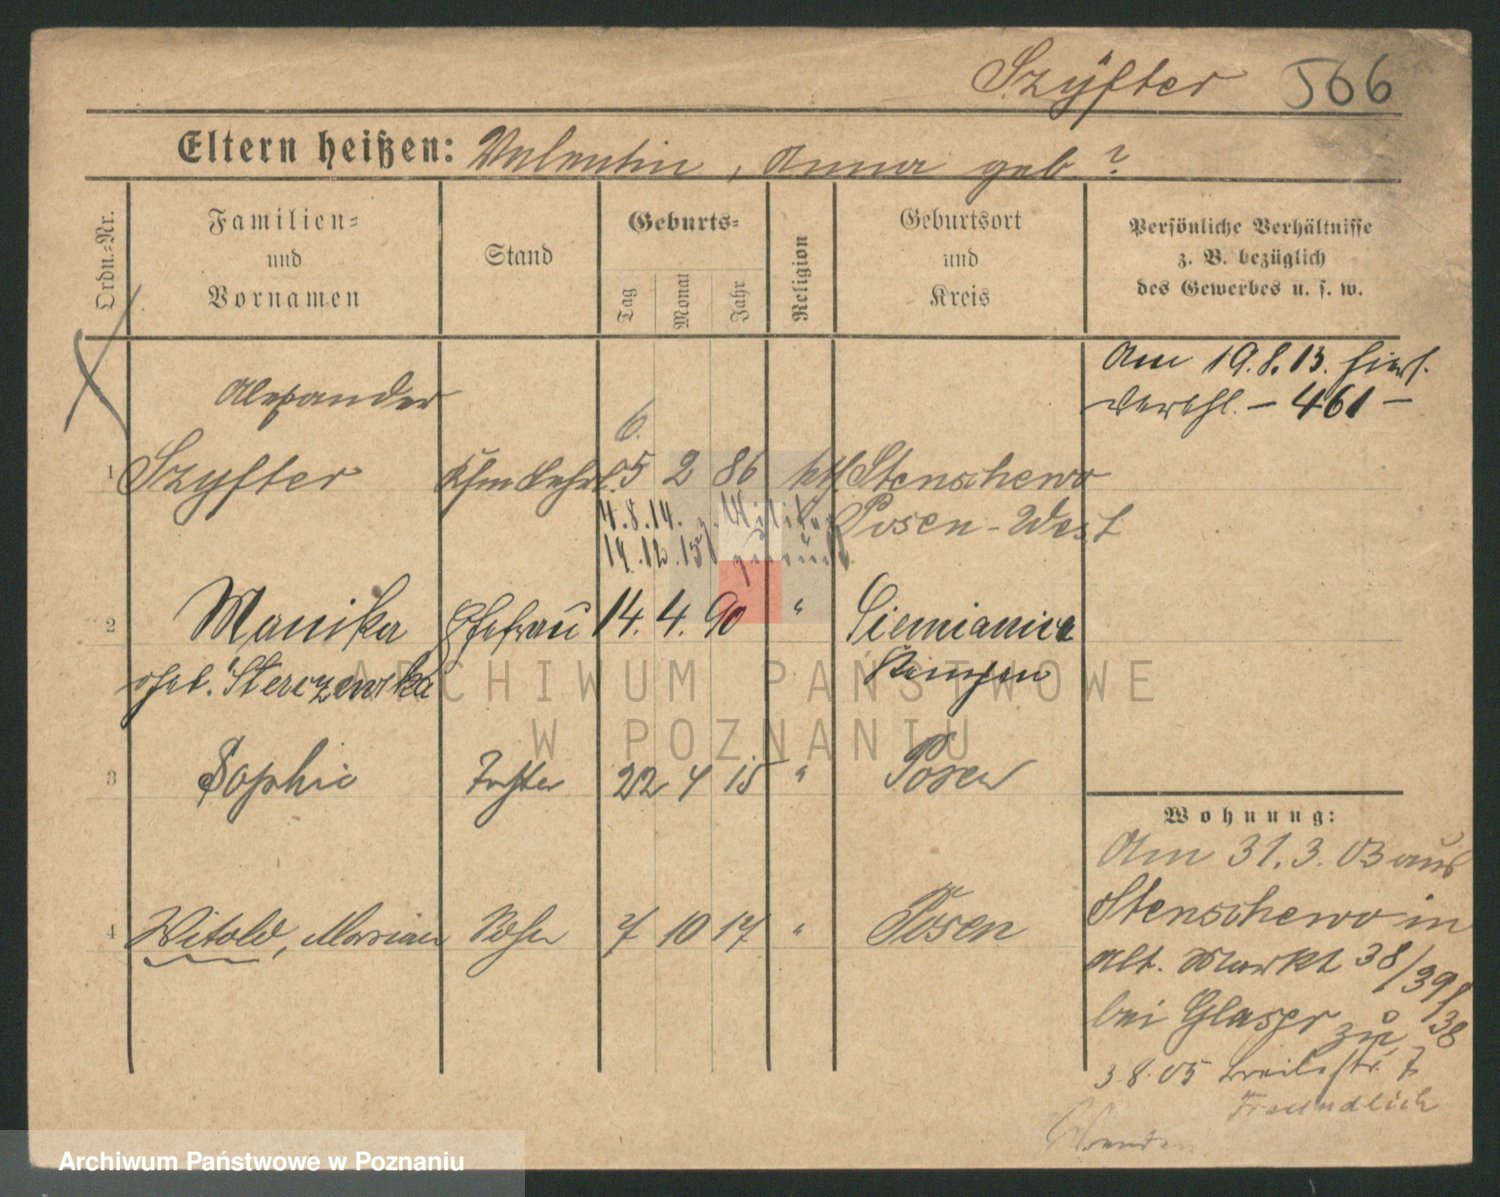 Szyfter 566
Eltern heißen: Valentin, Anna geb. ?
Ordn.=Nr.
Familien=
und
Vornamen
Stand
Geburts=
Tag
Monat
Jahr
Religion
Geburtsort
und
Kreis
Persönliche Verhältnisse
z. B. bezüglich
des Gewerbes u. s. w.
Am 19.8.13. hier
verehl. - 461 -
Alexander
6.
1 Szyfter 5 2 86 kth. Stenschewo
4.8.14. z. Militär Posen-West
zurück
2 Monika Ehefrau 14. 4. 90 " Siemianice
geb. Sterczewska Kempen
3 Sophie Tochter 22 4 15 " Posen
4 Witold, Marian Sohn 7 10 17 " Posen
Wohnung:
Am 31.3.03 aus
Stenschewo in
Alt. Markt 38/39
bei Glaser zu 38
3.8.05 7
Freundlich
Wenden
ARCHIWUM PAŃSTWOWE
W POZNANIU
Archiwum Państwowe w Poznaniu